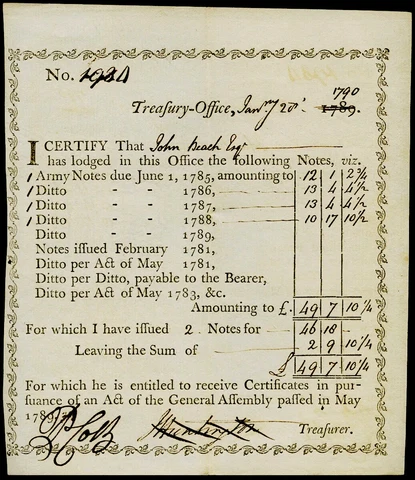 No. 1924
1790
Treasury-Office, Janry 28 1789.
I CERTIFY That John Beach Esqr
has lodged in this Office the following Notes, viz.
1 Army Notes due June 1, 1785, amounting to 12 1 2 3/4
1 Ditto - - 1786, 13 4 4 1/2
1 Ditto - - 1787, 13 4 4 1/2
1 Ditto - - 1788, 10 17 10 1/2
Ditto - - 1789,
Notes issued February 1781,
Ditto per Act of May 1781,
Ditto per Ditto, payable to the Bearer,
Ditto per Act of May 1783, &c.
Amounting to £. 49 7 10 1/4
For which I have issued 2 Notes for 46 18 -
Leaving the Sum of 2 9 10 1/4
£ 49 7 10 1/4
For which he is entitled to receive Certificates in pur-
suance of an Act of the General Assembly passed in May
1789.
J Huntington Treasurer.